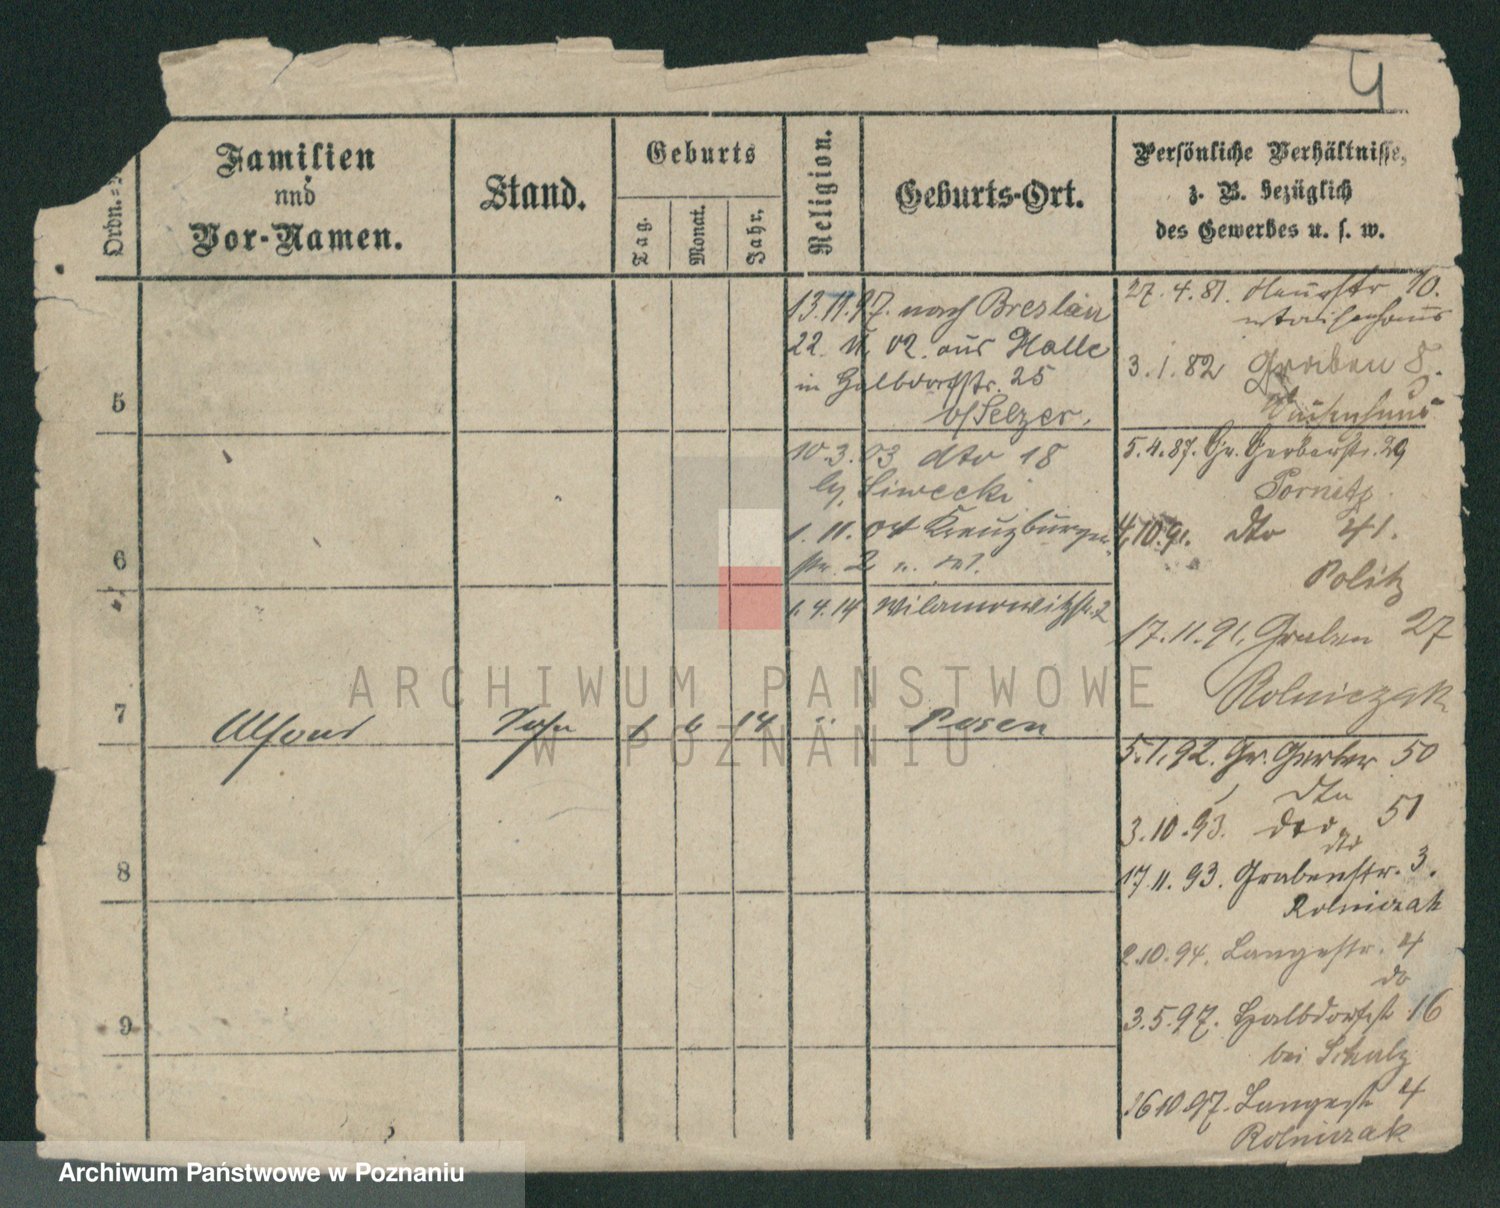 4
Ordn.=
Familien
und
Vor-Namen.
Stand.
Geburts
Tag.
Monat.
Jahr.
Religion.
Geburts-Ort.
Persönliche Verhältnisse,
z. B. bezüglich
des Gewerbes u. s. w.
13.11.97. nach Breslau
22. 11. 02. aus Halle
in Halbdorfstr. 25
b/Selzer.
10.3.03 dto 18
b/ Siwecki
1. 11. 04 Kreuzburger
str. 2
1.4.14 Wilamowitzstr. 2
27.4.81. Neuestr 10.
Waisenhaus
3.1.82 Graben 8.
Waisenhaus
5.4.87. Gr. Gerberstr. 29
4.10.91. dto 41.
Politz
17.11.91. Graben 27
Rolniczak
5.1.92. Gr. Gerber 50
dto
3.10.93. dto 51
dto
17.11.93. Grabenstr. 3.
Rolniczak
2.10.94. Langestr. 4
do
3.5.97. Halbdorfst 16
bei Schulz
16.10.97. Langestr 4
Rolniczak
5
6
7
Alfons
Sohn
1
6
14
"
Posen
8
9
ARCHIWUM PAŃSTWOWE
W POZNANIU
Archiwum Państwowe w Poznaniu